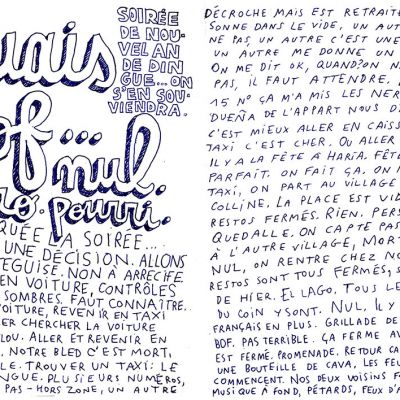 SOIRÉE
DE NOU-
VEL AN
DE DIN
GUE...ON
S'EN SOU-
VIENDRA.
uais
of...
nul.
ro. pourri.
QUÉE LA SOIRÉE...
UNE DÉCISION. ALLONS
TEGUISE. NON À ARRECIFE
EN VOITURE, CONTRÔLES
SOMBRES. FAUT CONNAÎTRE..
VOITURE, REVENIR EN TAXI
ER CHERCHER LA VOITURE
LOU. ALLER ET REVENIR EN
, NOTRE BLED C'EST MORT,
LE. TROUVER UN TAXI: LE
NGUE. PLUSIEURS NUMÉROS,
PAS - HORS ZONE, UN AUTRE
DÉCROCHE MAIS EST RETRAITÉ
SONNE DANS LE VIDE, UN AUT
NE PAS, UN AUTRE C'EST UNE
UN AUTRE ME DONNE UN
ON ME DIT OK, QUAND? ON N
PAS, IL FAUT ATTENDRE, À
15 N° ÇA M'A MIS LES NER
DUEÑA DE L'APPART NOUS D
C'EST MIEUX ALLER EN CAISS
TAXI C'EST CHER. OU ALLER
IL Y A LA FÊTE À HARÍA. FÊTE
PARFAIT. ON FAIT ÇA. ON
TAXI, ON PART AU VILLAGE
COLLINE. LA PLACE EST VID
RESTOS FERMÉS. RIEN. PERS
QUEDALLE. ON CAPTE PAS
À L'AUTRE VILLAGE, MORT
NUL, ON RENTRE CHEZ NO
RESTOS SONT TOUS FERMÉS, S
DE HIER. EL LAGO. TOUS LE
DU COIN Y SONT. NUL. IL Y
FRANÇAIS EN PLUS. GRILLADE DE
BOF. PAS TERRIBLE. ÇA FERME AV
EST FERMÉ. PROMENADE. RETOUR CA
UNE BOUTEILLE DE CAVA, LES FEU
COMMENCENT. NOS DEUX VOISINS FO
MUSIQUE À FOND, PÉTARDS, FEUX D'A